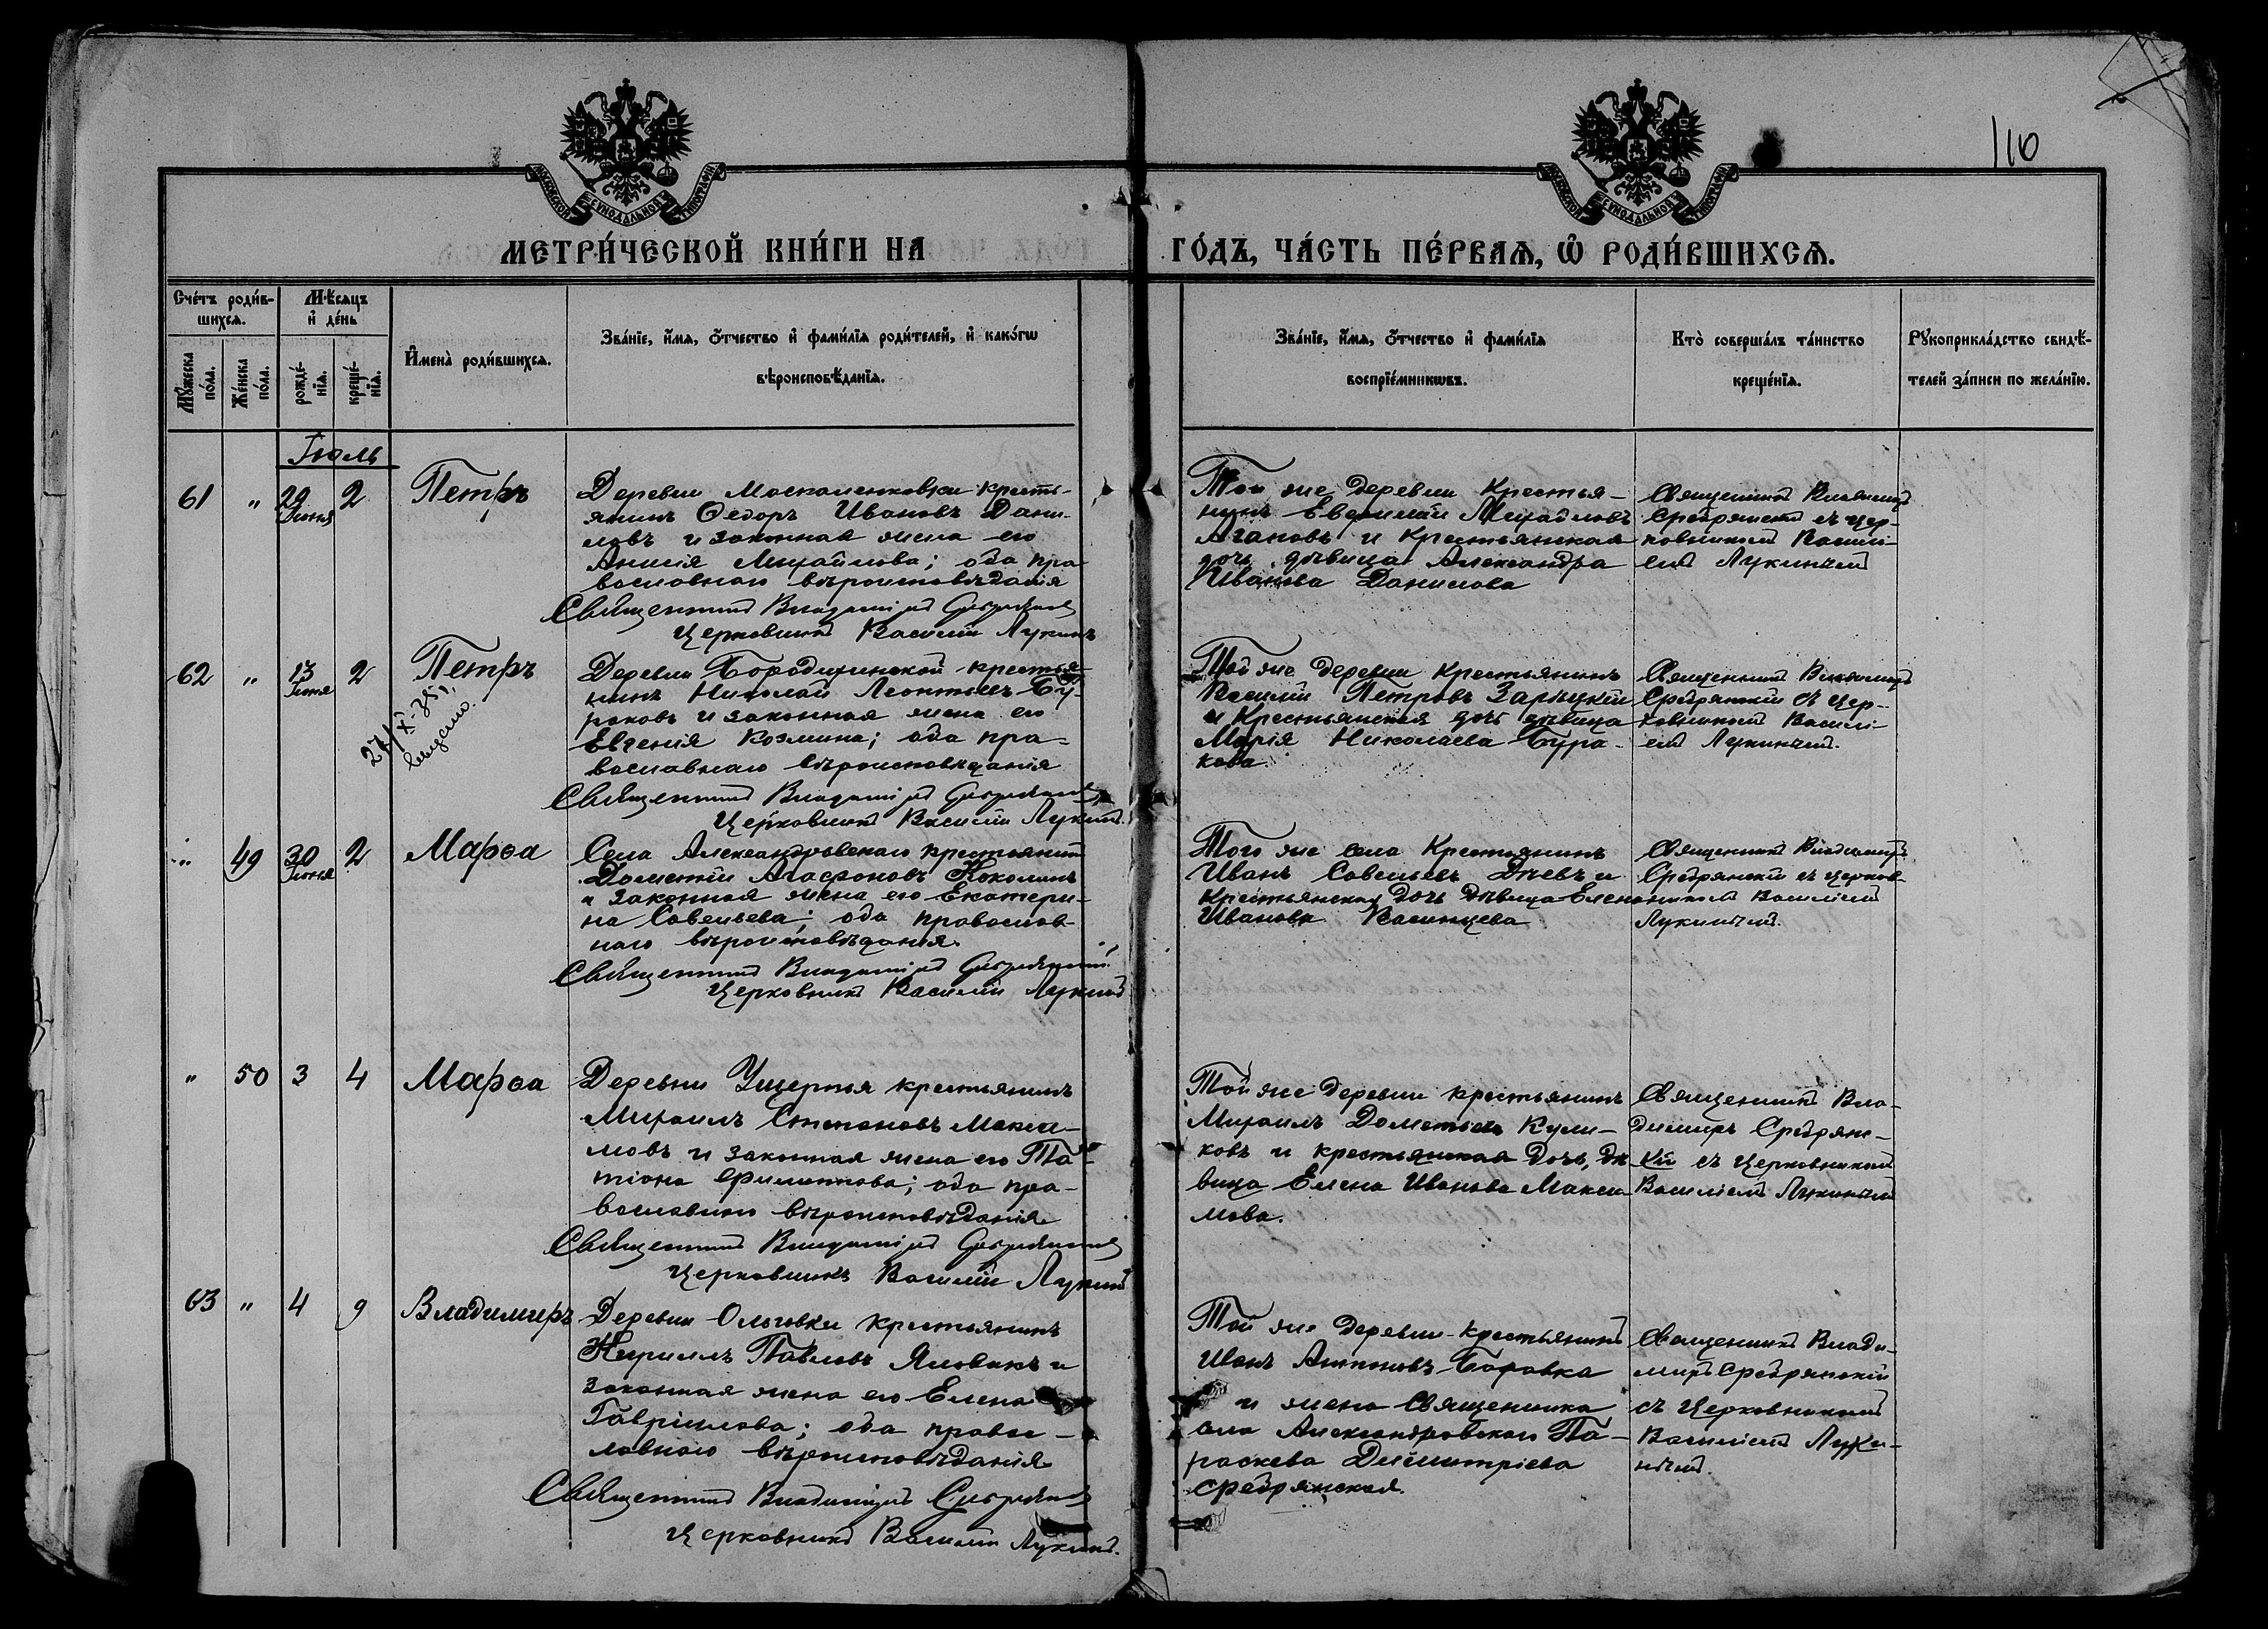 110
МОСКОВСКОЙ СУНОДАЛЬНОЙ ТИПОГРАФІИ
МОСКОВСКОЙ СУНОДАЛЬНОЙ ТИПОГРАФІИ
МЕТРИ́ЧЕСКОЙ КНИ́ГИ НА
ГО́ДЪ, ЧА́СТЬ ПЕ́РВАѦ, Ѽ РОДИ́ВШИХСѦ.
Сче́тъ роди́в-
шихсѧ.
Мѣ́сѧцъ
и҆ де́нь
Мꙋ́жеска
по́ла.
Же́нска
по́ла.
рожде́-
нїѧ.
креще́-
нїѧ.
И҆мена̀ роди́вшихсѧ.
Зва́нїе, и҆́мѧ, ѻ҆́тчество и҆ фами́лїѧ роди́телей, и҆ како́гѡ
вѣроисповѣ́данїѧ.
Зва́нїе, и҆́мѧ, ѻ҆́тчество и҆ фами́лїѧ
воспрїе́мникѡвъ.
Кто̀ соверша́лъ та́инство
креще́нїѧ.
Рꙋкоприкла́дство свидѣ́-
телей за́писи по жела́нїю.
Іюль
61 " 29 Іюня 2 Петръ
Деревни Москаленковки кресть-
янинъ Ѳедоръ Ивановъ Дани-
ловъ и законная жена его
Анисія Михайлова; оба пра
вославнаго вѣроисповѣданія
Священникъ Владиміръ Сребрянскій
Церковникъ Василій Лукинъ
Той же деревни Крестья-
нинъ Евфимій Михайловъ
Агановъ и Крестьянская
дочь дѣвица Александра
Иванова Данилова
Священникъ Владиміръ
Сребрянскій съ цер-
ковникомъ Василі-
емъ Лукинымъ
62 " 13 Іюня 2 Петръ
27/X-35,
Деревни Бородинской крестья
нинъ Николай Леонтьевъ Бу-
раковъ и законная жена его
Евгенія Козмина; оба пра-
вославнаго вѣроисповѣданія
Священникъ Владиміръ Сребрянскій
Церковникъ Василій Лукинъ.
Той же деревни Крестьянинъ
Василій Петровъ Зарыцкій
и Крестьянская дочь дѣвица
Марія Николаева Бура-
кова.
Священникъ Владиміръ
Сребрянскій съ цер-
ковникомъ Василі-
емъ Лукинымъ.
" 49 30 Іюня 2 Марѳа
Села Александровскаго крестьянинъ
Дометій Агафоновъ Коколинъ
и законная жена его Екатери-
на Савельева; оба православ-
наго вѣроисповѣданія.
Священникъ Владиміръ Сребрянскій
Церковникъ Василій Лукинъ
Того же села Крестьянинъ
Иванъ Савельевъ и
Крестьянская дочь дѣвица Елена
Иванова Васинцева
Священникъ Владиміръ
Сребрянскій съ церков-
никомъ Василіемъ
Лукинымъ.
" 50 3 4 Марѳа
Деревни Ущерпья крестьянинъ
Михаилъ Степановъ Макси-
мовъ и законная жена его Та-
тіана Филиппова; оба пра-
вославнаго вѣроисповѣданія
Священникъ Владиміръ Сребрянскій
Церковникъ Василій Лукинъ
Той же деревни крестьянинъ
Михаилъ Дометьевъ Кули-
ковъ и крестьянская дочь, дѣ
вица Елена Иванова Макси-
мова.
Священникъ Вла-
диміръ Сребрянс-
кій съ Церковникомъ
Василіемъ Лукинымъ
63 " 4 9 Владимиръ
Деревни Ольговки крестьянинъ
Кириллъ Павловъ Яловикъ и
законная жена его Елена
Гавріилова; оба правос-
лавнаго вѣроисповѣданія
Священникъ Владиміръ Сребрянскій
Церковникъ Василій Лукинъ.
Той же деревни крестьянинъ
Иванъ Антоновъ Боровка
и жена Священника
села Александровскаго Па-
раскева Димитріева
Сребрянская.
Священникъ Влади-
миръ Сребрянскій
съ Церковникомъ
Василіемъ Луки-
нымъ.